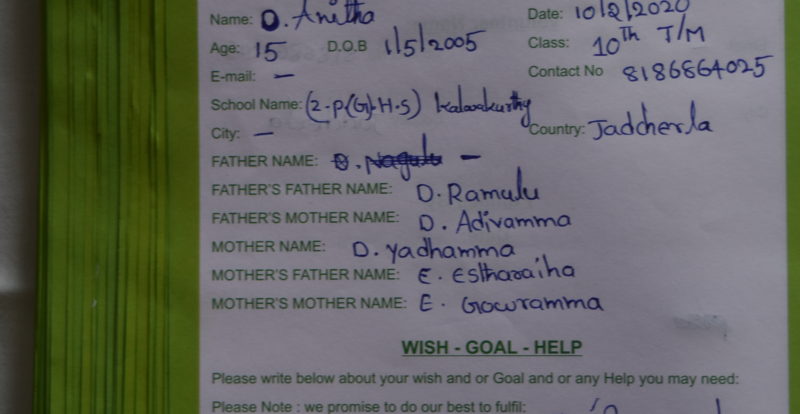 Name: D. Anitha Date: 10/2/2020
Age: 15 D.O.B 1/5/2005 Class: 10Th T/M
E-mail: — Contact No 8186864025
School Name: (Z.P(G).H.S) kalavakurthy
City: — Country: Jadcherla
FATHER NAME: D. Nagulu —
FATHER'S FATHER NAME: D. Ramulu
FATHER'S MOTHER NAME: D. Adivamma
MOTHER NAME: D. yadhamma
MOTHER'S FATHER NAME: E. Estharaiha
MOTHER'S MOTHER NAME: E. Gowramma
WISH - GOAL - HELP
Please write below about your wish and or Goal and or any Help you may need:
Please Note : we promise to do our best to fulfil: